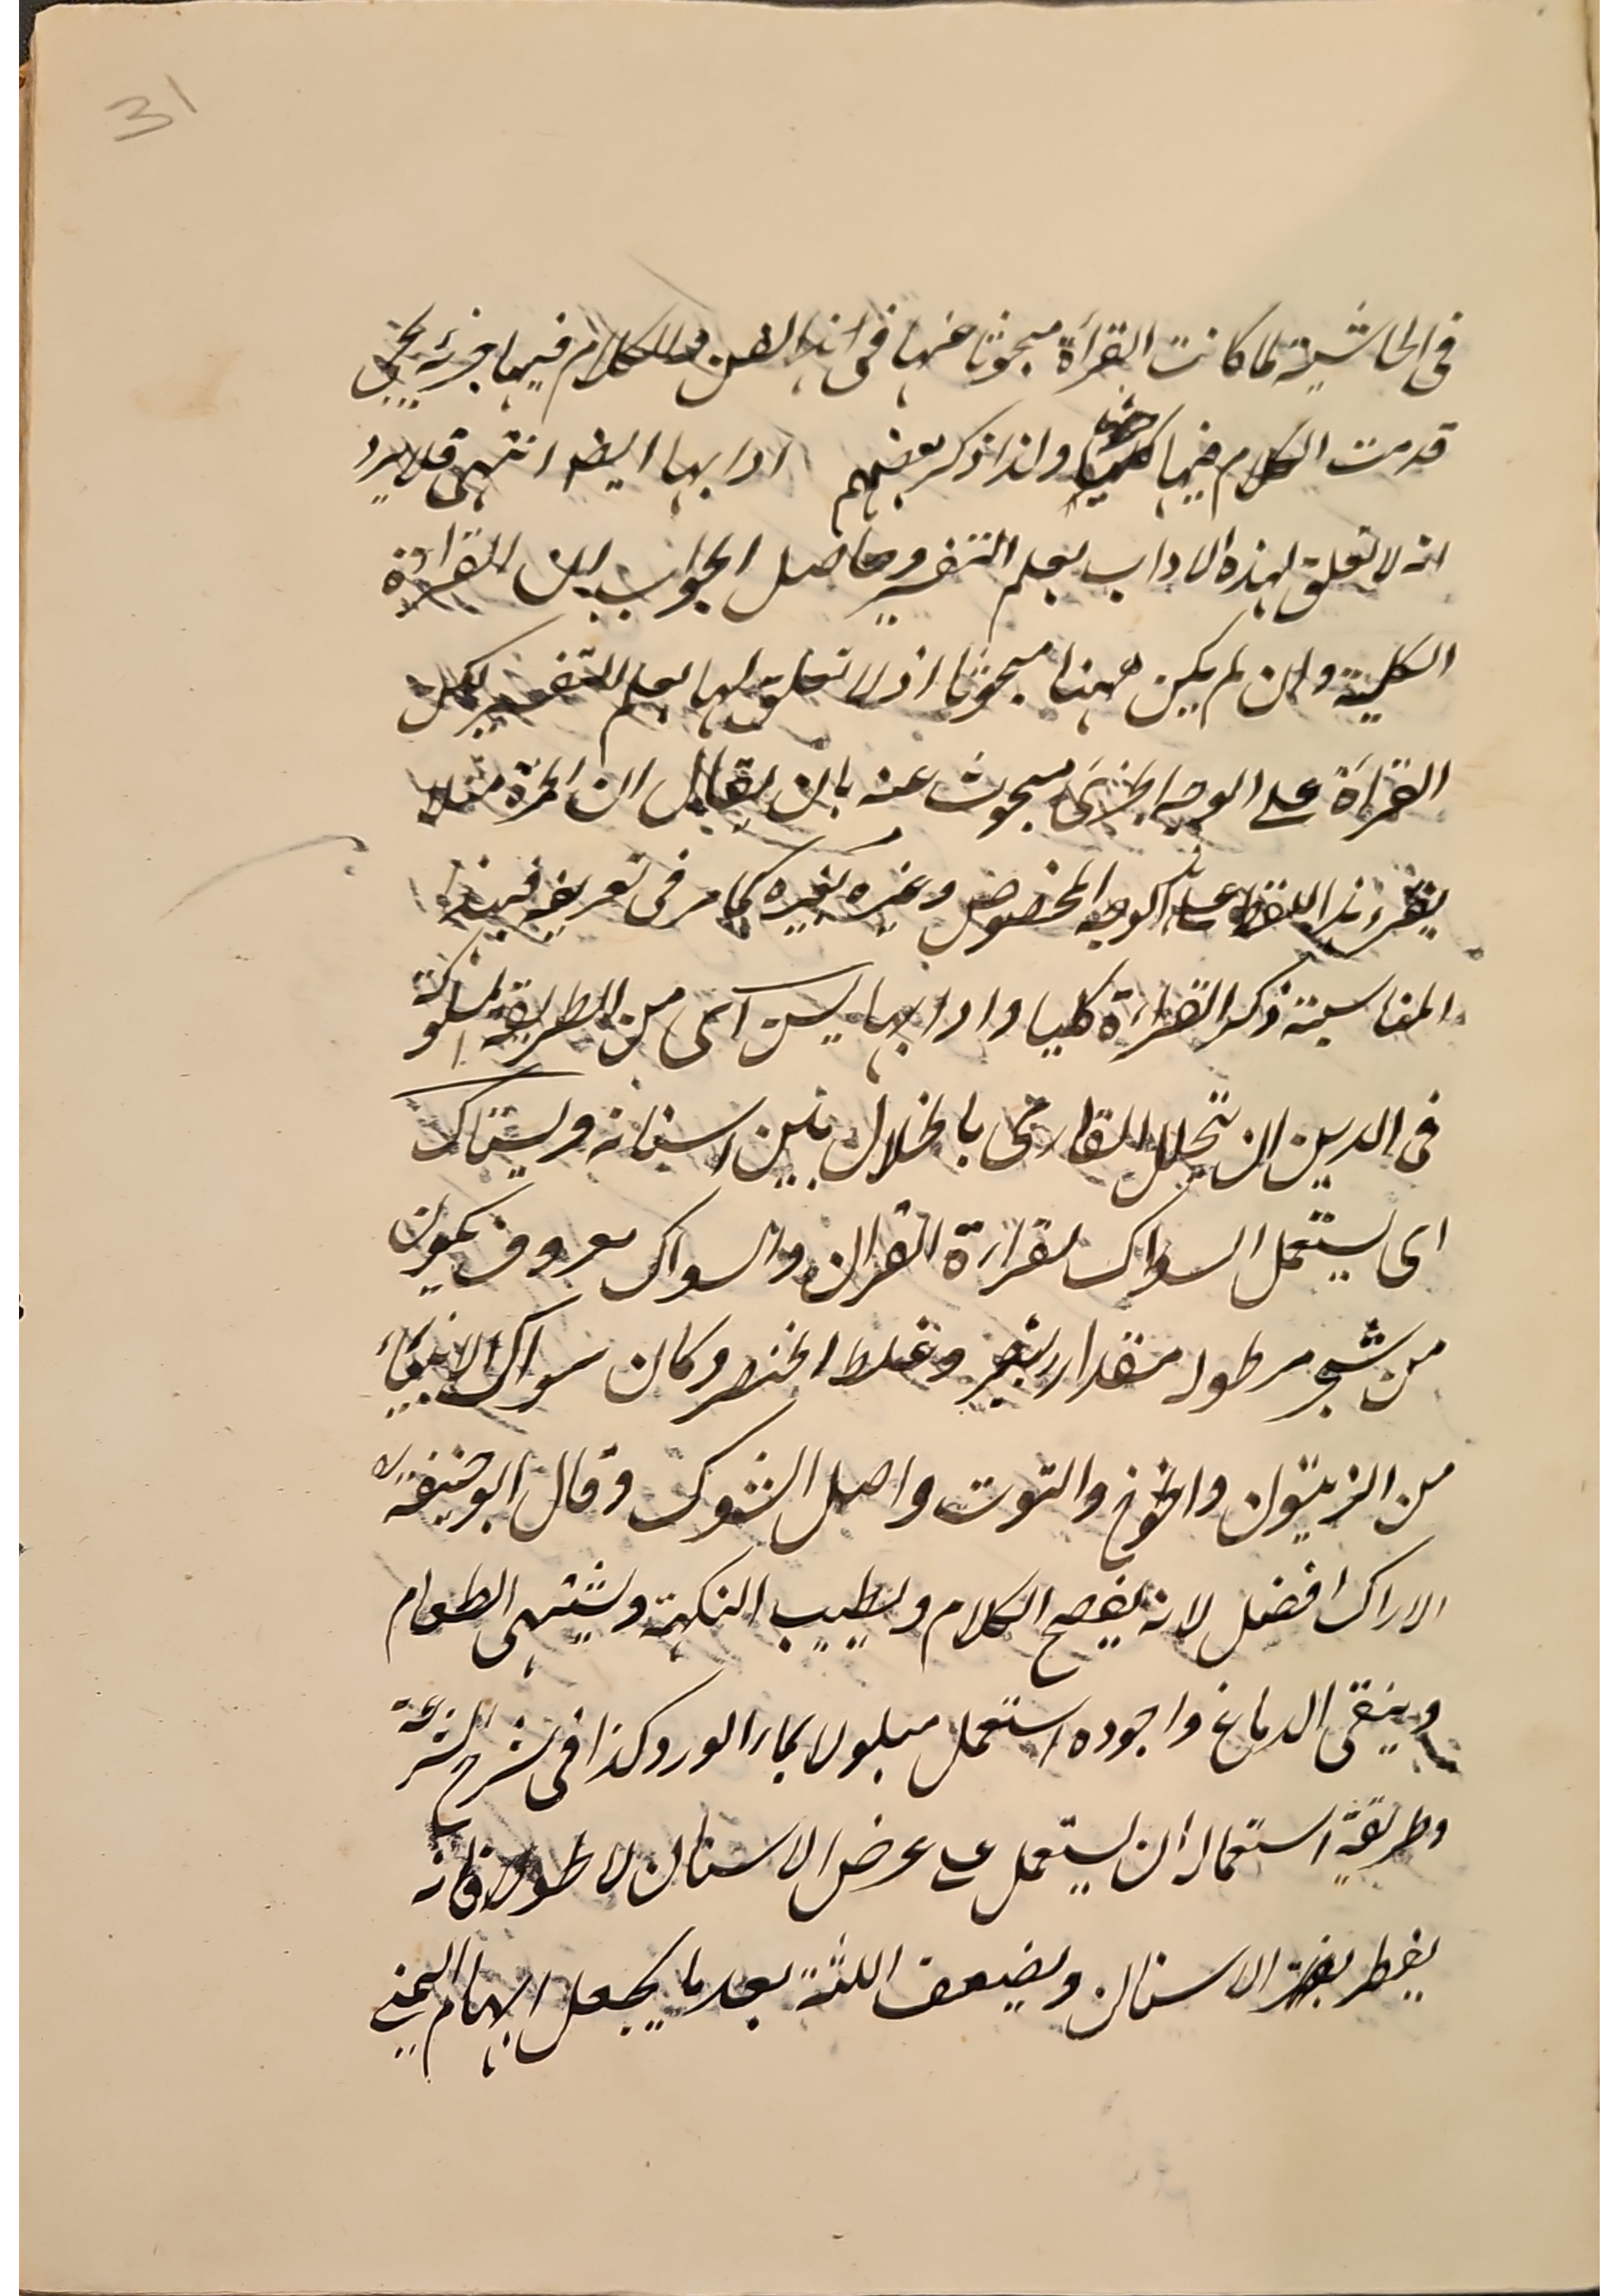 31
في الحاشية لما كانت القرأة مبحوثا عنها في هذا الفن والكلام فيها جزئي
قدمت الكلام فيها كليا ولذا ذكر بعضهم ادابها ايضا انتهى فلا يرد
انه لا تعلق لهذه الاداب بعلم التفسير وحاصل الجواب ان القراءة
الكلية وان لم يكن ههنا مبحوثا اذ لا تعلق لها بعلم التفسير لكن
القراءة على الوجه الجزئى مبحوث عنه بان يقال ان الحمزة مثلا
يقرء هذا اللفظ على الوجه المخصوص وغيره بغيره كما مر في تعريفه فبهذه
المناسبة ذكر القراءة كليا وادابها يسن اى من الطريقة المسلوكة
في الدين ان يتخلل القارى بالخلال بين اسنانه ويستاك
اى يستعمل السواك لقراءة القران والسواك معروف يكون
من شجر مر طوله مقدار شبر وغلظ الخنصر وكان سواك الانبياء
من الزيتون والخوخ والتوت واصل الشوك وقال ابو حنيفة رح
الاراك افضل لانه يفصح الكلام ويطيب النكهة ويشتهى الطعام
وينقى الدماغ واجوده استعمل مبلولا بماء الورد وكذا في شرح الشرعة
وطريقة استعماله ان يستعمل على عرض الاسنان لا طولا فانه
الاسنان ويضعف اللثة بعد ما يجعل ابهام اليمنى